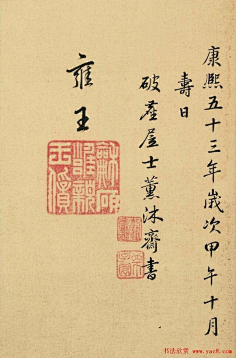 康熙五十三年歲次甲午十月
壽日
破塵居士薰沐齋書
雍王
书法欣赏
www.yac8.com